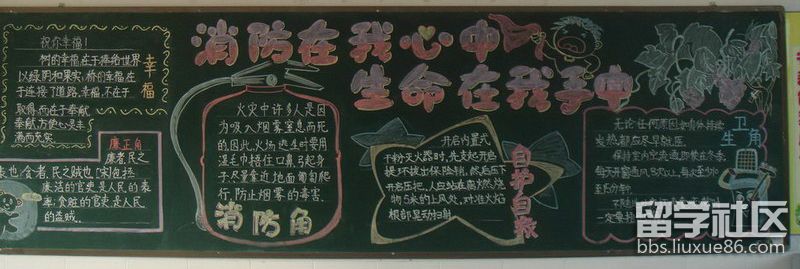 消防在我心中
生命在我手中
祝你幸福!
幸福
树的幸福在于捧给世界
以绿阴和果实,桥的幸福在
于连接了道路,幸福,不在于
取得,而在于奉献
廉正角
廉者,民之
表也;贪者,民之贼也[宋]包拯
廉洁的官吏是人民的表
率,贪赃的官吏是人民
的盗贼。
火灾中许多人是因
为吸入烟雾窒息而死
的因此,火场逃生时要用
湿毛巾捂住口鼻,弓起身
子尽量靠近地面匍匐爬
行,防止烟雾的毒害.
消防角
开启内置式
干粉灭火器时,先支起开启
提环拔出保险销,然后压下
开启压把,人应站在离燃烧
物5米的上风处,对准火焰
根部晃动扫射
自护自救
卫生角
无论任何原因
发热都应尽早就医.
保持室内空气通
留学社区
bbs.liuxue86.com